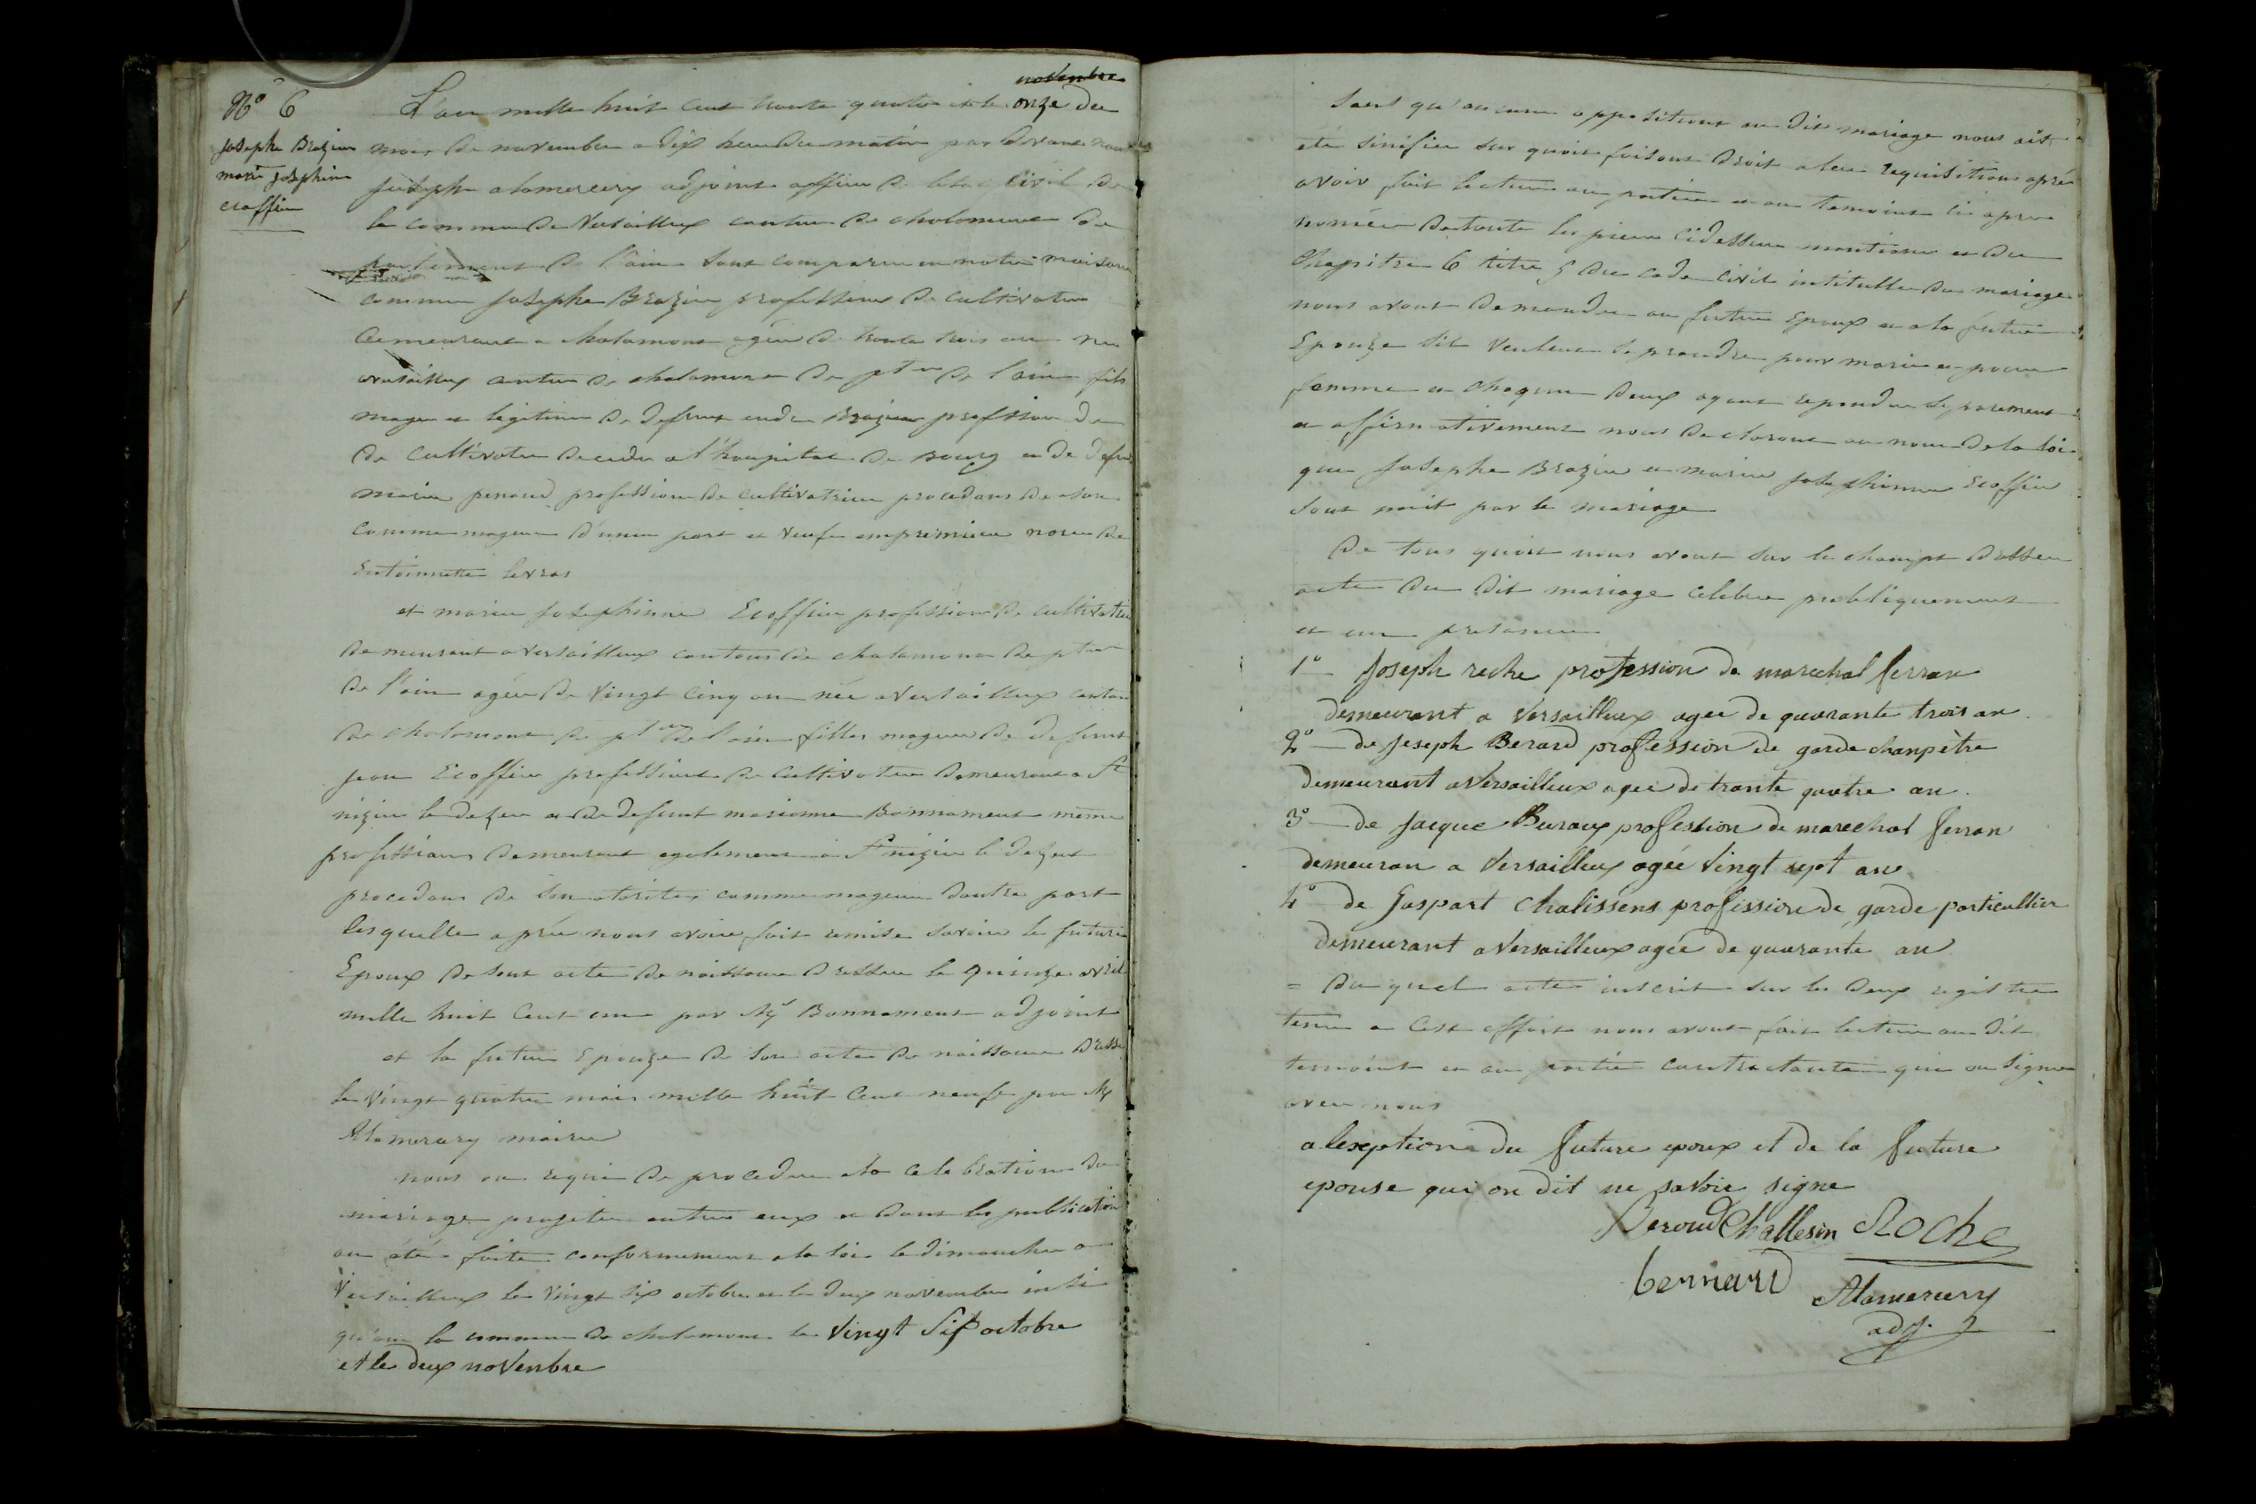 N° 6
Josephe Brazier
marie Josephine
ecoffier
novembre
L'an mille huit cent trante quatre et le onze du
mois de novembre a dix heu du matin par devant nous
Joseph alamercery adjoint officie de letat Civil de
la commune de Versailleux canton de chalamont de
partement de l'ain sont comparu en notre maison
commune Josephe Brazier profession de Cultivateur
demeurant a chalamont agée de trante trois an né
aversailleux canton de chalamont de ptem de l'ain fils
mageur et legitime de defunt Brazier profession de
de Cultivateu decedu a l'houpital de Bourg et de defunt
marie penaud profession de cultivatrice procedans de
comme mageur d'une part et veufe en premiere nosse de
entoinette levras
et marie Josephinne Ecoffier profession de cultivatrice
demeurant aversailleux canton de chalamont de ptem
de l'ain agée de vingt cinq an née a versailleux canton
de chalamont de ptem de l'ain fille mageure de defunt
jean Ecoffier profession de Cultivateur demeurant a St
nizier le dezer et de defunt marianne Bonnament meme
profession demeurant egalement a St nizier le dezert
procedans de son otorité comme mageure dautre part
lesquelle aprés nous avoir fait remise savoir le future
Epoux de sont acte de naissance dressee le quinze avril
mille huit Cent un par Mr Bonnament adjoint
et la future Epouze de son acte de naissance dresse
le vingt quatre mille huit Cent neufe par Mr
Alamercery maire
nous on requi de proceder ala celebration du
mariage projeter entre eux et dont les publication
on été faite conformement ala loi le dimanche a
Versailleux le vingt six octobre et le deux novembre insi
qu'en la commune de chalamont le vingt Six octobre
et le deux novenbre
Sans qu'au cune oppositions au dit mariage nous ait
été sinifier sur quoi faisant droit a leur requisitions apré
avoir fait lecture au partie et au temoins ci apres
nomée de toute les piece cidessue mentionne et du
Chapitre 6 titre 5 du code civil intitulle du mariage
nous avont demandee au futur Epoux et a la future
Epouze sil veulent se prendre pour marie et pour
femme et chaqun deux ayant repondu separement
et affirmativement nous declarons au nom de la loi
que Josephe Brazier et marie josephinne Ecoffier
sont unit par le mariage
De tous quoit nous avont sur le champt dressee
acte du dit mariage celebre publiquement
et en presance
1° Joseph roche profession de marechal ferran
demeurant a versailleux agee de quarante trois an
2° de Joseph Berard profession de garde chanpètre
demeurant aversailleux agee de trante quatre an.
3° de Jacque Buraux profession de marechal ferran
demeuran a versailleux agée vingt sept an
4° de Gaspart chalissens profission de garde particullier
demeurant aversailleux agee de quarante an
= du quel acte inscrit sur les deux registre
tenu a cest effait nous avont fait lecture au dit
temoint et au partie contractante qui on signe
avec nous
a lexeption du future epoux et de la future
epouse qui on dit ne savoir signe
Beroud Challesin Roche
bernard Alamercery
adj.